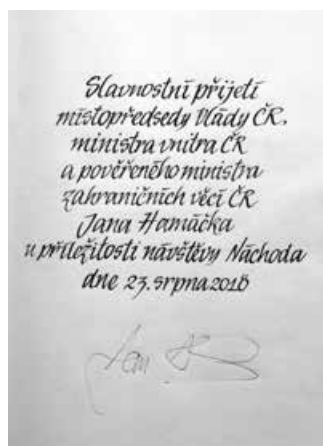 Slavnostní přijetí
místopředsedy Vlády ČR,
ministra vnitra ČR
a pověřeného ministra
zahraničních věcí ČR
Jana Hamáčka
u příležitosti návštěvy Náchoda
dne 23. srpna 2018
Jan